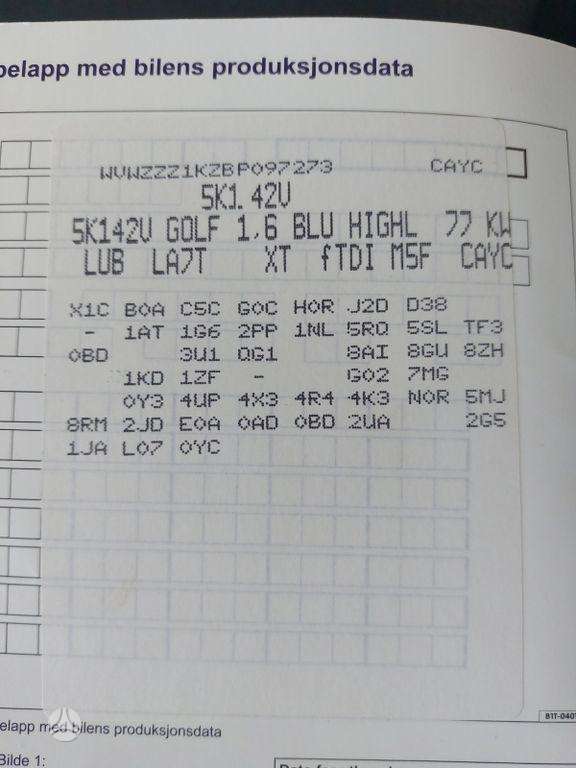 belapp med bilens produksjonsdata
WVWZZZ1KZBP097273 CAYC
5K1.42V
5K142V GOLF 1,6 BLU HIGHL 77 KW
LUB LA7T XT fTDI M5F CAYC
X1C B0A C5C G0C H0R J2D D38
- 1AT 1G6 2PP 1NL 5RQ 5SL TF3
0BD 3U1 QG1 8AI 8GU 8ZH
1KD 1ZF - G02 7MG
0Y3 4UP 4X3 4R4 4K3 N0R 5MJ
8RM 2JD E0A 0AD 0BD 2UA 2G5
1JA L07 0YC
B1T-040
elapp med bilens produksjonsdata
Bilde 1: